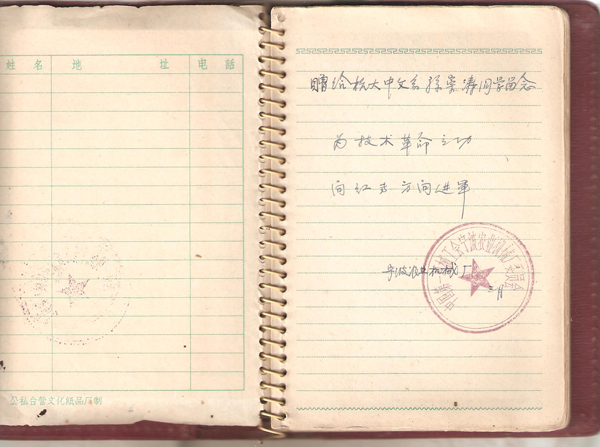 姓名 地址 電話
公私合營文化紙品厂制
贈给杭大中文系孫崇涛同学留念
为技术革命立功
向红专方向进军
宁波农业机械厂
月